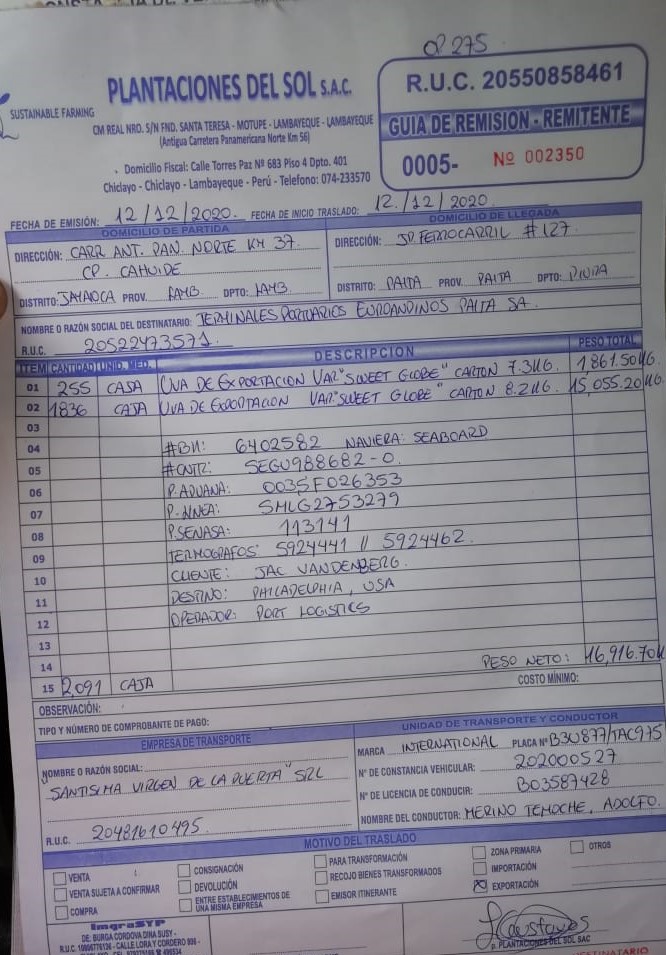 OP 275
PLANTACIONES DEL SOL S.A.C.
SUSTAINABLE FARMING
CM REAL NRO. S/N FND. SANTA TERESA - MOTUPE - LAMBAYEQUE - LAMBAYEQUE
(Antigua Carretera Panamericana Norte Km 56)
Domicilio Fiscal: Calle Torres Paz Nº 683 Piso 4 Dpto. 401
Chiclayo - Chiclayo - Lambayeque - Perú - Telefono: 074-233570
R.U.C. 20550858461
GUIA DE REMISION - REMITENTE
0005- Nº 002350
FECHA DE EMISIÓN: 12/12/2020. FECHA DE INICIO TRASLADO: 12/12/2020
DOMICILIO DE PARTIDA DOMICILIO DE LLEGADA
DIRECCIÓN: CARR ANT. PAN. NORTE KM 37. DIRECCIÓN: JD FERROCARRIL #127.
CP. CAHUIDE
DISTRITO: JAYAOCA PROV. LAMB. DPTO: LAMB. DISTRITO: PAITA PROV. PAITA DPTO: PIURA
NOMBRE O RAZÓN SOCIAL DEL DESTINATARIO: TERMINALES PORTUARIOS EUROANDINOS PAITA SA.
R.U.C. 20522473571
ITEM CANTIDAD UNID. MED. DESCRIPCION PESO TOTAL
01 255 CAJA UVA DE EXPORTACION VAR "SWEET GLOBE" CARTON 7.3KG. 1,861.50KG
02 1836 CAJA UVA DE EXPORTACION VAR "SWEET GLOBE" CARTON 8.2KG. 15,055.20KG.
03
04 #BK: 6402582 NAVIERA: SEABOARD
05 #CNTR: SEGU988682-0.
06 P. ADUANA: 0035F026353
07 P. LINEA: SMLG2753279
08 P. SENASA: 113141
09 TERMOGRAFOS: 5924441 // 5924462.
10 CLIENTE: JAC VANDENBERG.
11 DESTINO: PHILADELPHIA, USA
12 OPERADOR: PORT LOGISTICS
13
14 PESO NETO: 16,916.70K
15 2,091 CAJA COSTO MÍNIMO:
OBSERVACIÓN:
TIPO Y NÚMERO DE COMPROBANTE DE PAGO:
EMPRESA DE TRANSPORTE UNIDAD DE TRANSPORTE Y CONDUCTOR
MARCA INTERNATIONAL PLACA Nº B3U877/TAC975
NOMBRE O RAZÓN SOCIAL: Nº DE CONSTANCIA VEHICULAR: 202000527
SANTISIMA VIRGEN DE LA PUERTA" SRL Nº DE LICENCIA DE CONDUCIR: B03587428
R.U.C. 20481610495. NOMBRE DEL CONDUCTOR: MERINO TEMOCHE, ADOLFO.
MOTIVO DEL TRASLADO
VENTA CONSIGNACIÓN PARA TRANSFORMACIÓN ZONA PRIMARIA OTROS
VENTA SUJETA A CONFIRMAR DEVOLUCIÓN RECOJO BIENES TRANSFORMADOS IMPORTACIÓN
COMPRA ENTRE ESTABLECIMIENTOS DE UNA MISMA EMPRESA EMISOR ITINERANTE EXPORTACIÓN
ImgraSYP
DE: BURGA CORDOVA DINA SUSY -
CALLE LORA Y CORDERO
P. PLANTACIONES DEL SOL SAC